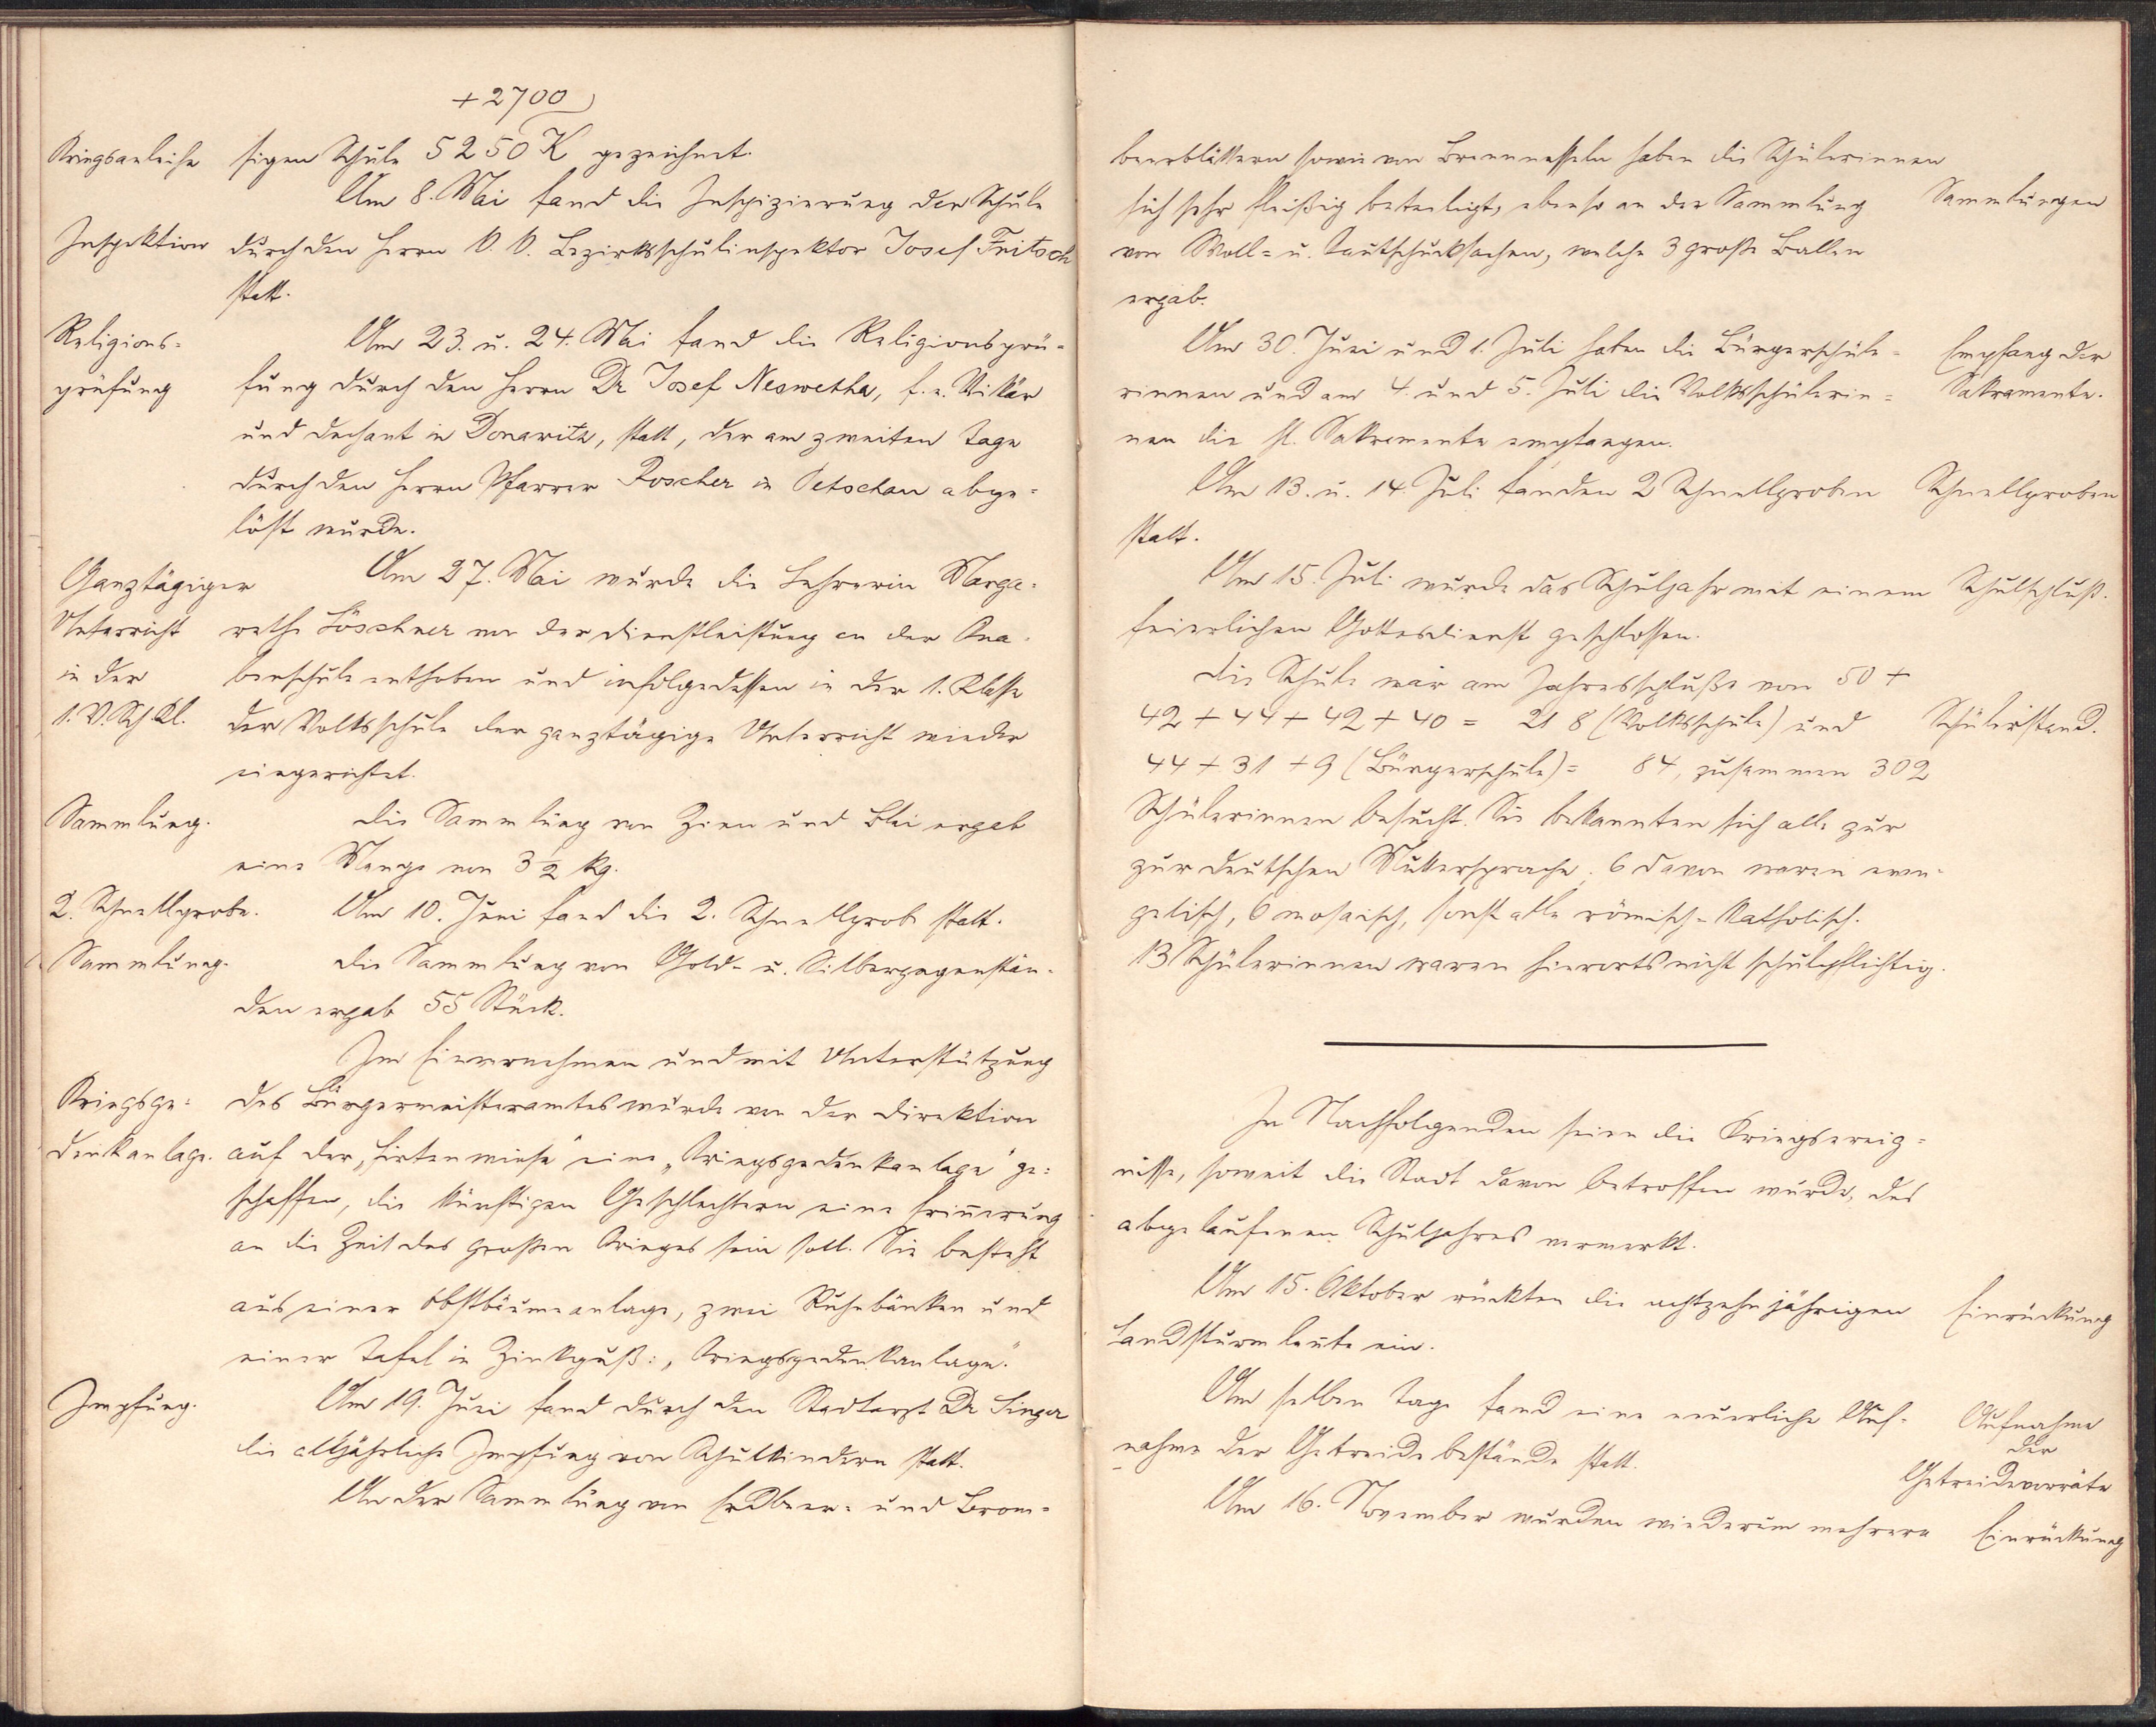 +2700
Kriegsanleihe sigen Schule 5250 K gezeichnet.
Am 8. Mai fand die Inspizierung der Schule
Inspektion durch den Herrn k. k. Bezirksschulinspektor Josef Fritsch
statt.
Religions- Am 23. u. 24. Mai fand die Religionsprü-
prüfung fung durch den Herrn Dr Josef Neswetha, f. e. Vikär
und Dechant in Donawitz, statt, der am zweiten Tage
durch den Herrn Pfarrer Roscher in Petschau abge-
löst wurde.
Ganztägiger Am 27. Mai wurde die Lehrerin Marga-
Unterricht rethe Löschner von der Dienstleistung an der Kna-
in der benschule enthoben und infolgedessen in der 1. Klasse
1. V. Sch. Kl. der Volksschule der ganztägige Unterricht wieder
eingerichtet.
Sammlung. Die Sammlung von Zinn und Blei ergab
eine Menge von 3 1/2 kg.
2. Schnellprobe. Am 10. Juni fand die 2. Schnellprobe statt.
Sammlung. Die Sammlung von Gold- u. Silbergegenstän-
den ergab 55 Stück.
Im Einvernehmen und mit Unterstützung
Kriegsge- des Bürgermeisteramtes wurde von der Direktion
denkanlage. auf der „Hirtenwiese" eine „Kriegsgedenkanlage" ge-
schaffen, die künftigen Geschlechtern eine Erinnerung
an die Zeit des großen Krieges sein soll. Sie besteht
aus einer Obstbäumeanlage, zwei Ruhebänken und
einer Tafel in Zinkguß: „Kriegsgedenkanlage".
Impfung. Am 19. Juni fand durch den Stadtarzt Dr Singer
die alljährliche Impfung von Schulkindern statt.
An der Sammlung von Erdbeer- und Brom-
beerblättern sowie von Brennnesseln haben die Schülerinnen
sich sehr fleißig beteiligt, ebenso an der Sammlung Sammlungen
von Woll- u. Kautschucksachen, welche 3 große Ballen
ergab.
Am 30. Juni und 1. Juli haben die Bürgerschüle- Empfang der
rinnen und am 4. und 5. Juli die Volksschülerin- Sakramente.
nen die hl. Sakramente empfangen.
Am 13. u. 14. Juli fanden 2 Schnellproben Schnellproben
statt.
Am 15. Juli wurde das Schuljahr mit einem Schulschluß.
feierlichen Gottesdienst geschlossen.
Die Schule war am Jahresschluße von 50 +
42 + 44 + 42 + 40 = 218 (Volksschule) und Schülerstand.
44 + 31 + 9 (Bürgerschule) = 84, zusammen 302
Schülerinnen besucht. Sie bekannten sich alle zur
zur deutschen Muttersprache. 6 davon waren evan-
gelisch, 6 mosaisch, sonst alle römisch-katholisch.
13 Schülerinnen waren hierorts nicht schulpflichtig.
In Nachfolgenden seien die Kriegsereig-
nisse, soweit die Stadt davon betroffen wurde, des
abgelaufenen Schuljahres vermerkt.
Am 15. Oktober rückten die achtzehnjährigen Einrückung
Landsturmleute ein.
Am selben Tage fand eine neuerliche Auf- Aufnahme
nahme der Getreidebestände statt. der
Getreidevorräte
Am 16. November wurden wiederum mehrere Einrückung